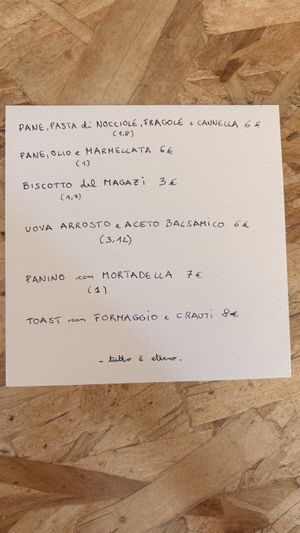 PANE, PASTA di NOCCIOLE, FRAGOLE e CANNELLA 6 €
(1,8)
PANE, OLIO e MARMELLATA 6€
(1)
BISCOTTO del MAGAZI 3€
(1,7)
UOVA ARROSTO e ACETO BALSAMICO 6€
(3,12)
PANINO con MORTADELLA 7€
(1)
TOAST con FORMAGGIO e CRAUTI 8€
- tutto è eterno.